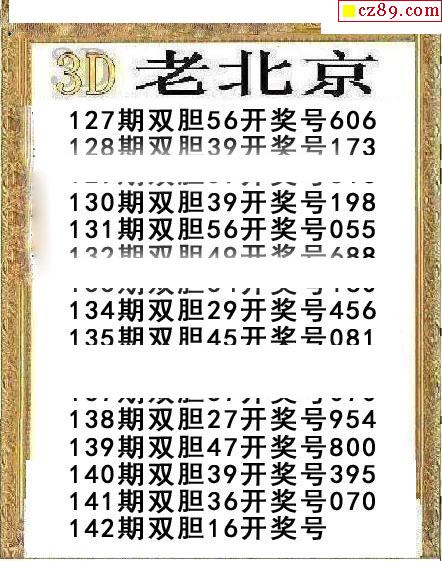 cz89.com
3D 老北京
127期双胆56开奖号606
128期双胆39开奖号173
130期双胆39开奖号198
131期双胆56开奖号055
132期双胆49开奖号688
134期双胆29开奖号456
135期双胆45开奖号081
138期双胆27开奖号954
139期双胆47开奖号800
140期双胆39开奖号395
141期双胆36开奖号070
142期双胆16开奖号